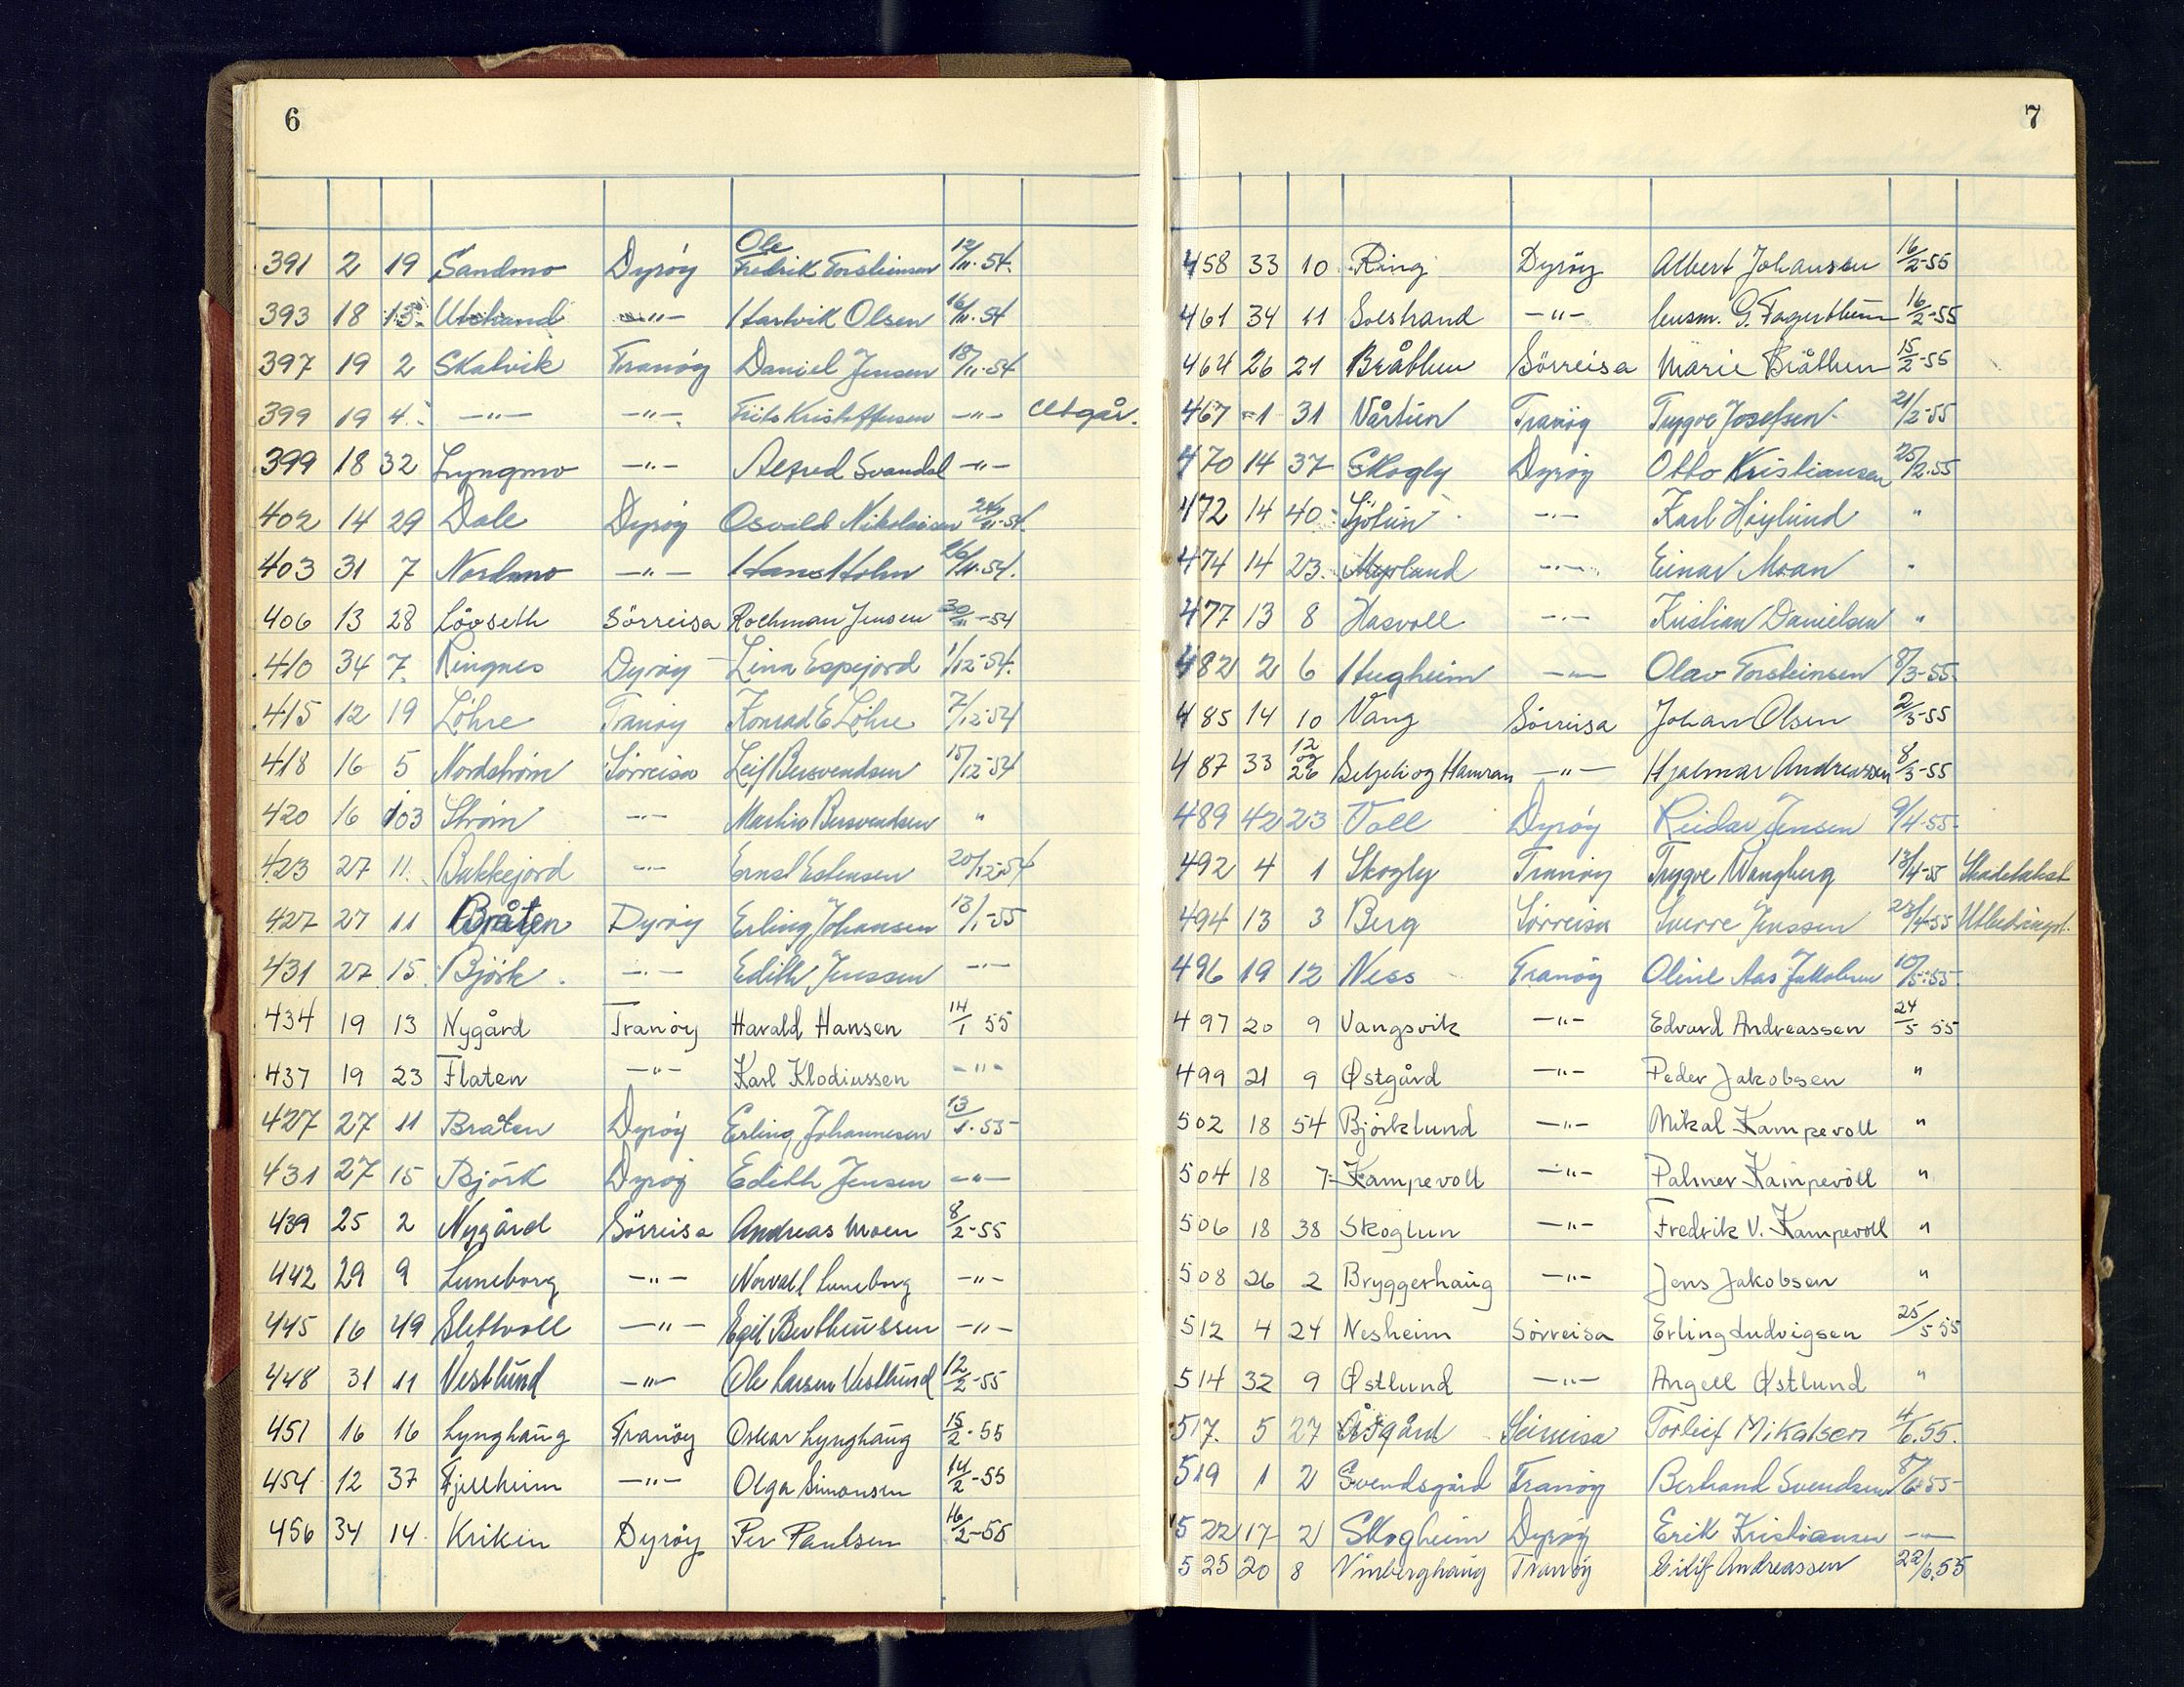 6
391 2 19 Sandmo Dyröy Ole Fredrik Torsteinsen 12/11-54.
393 18 13 Utstrand —"— Hartvik Olsen 16/11-54
397 19 2 Skatvik Tranöy Daniel Jensen 18/11-54
399 19 4 —"— —"— Frits Kristoffersen —"— Utgår.
399 18 32 Lyngmo —"— Alfred Svandal —"—
402 14 29 Dale Dyröy Osvald Nikolaisen 24/11-54
403 31 7 Nordmo —"— Hans Holm 26/11-54.
406 13 28 Lövseth Sörreisa Rochman Jensen 30/11-54
410 34 7 Ringnes Dyröy Lina Espejord 1/12-54.
415 12 19 Löhre Tranöy Konrad E Löhre 7/12-54
418 16 5 Nordström Sörreisa Leif Bersvendsen 15/12-54
420 16 103 Ström —"— Martin Bersvendsen "
423 27 11 Bakkejord —"— Ernst Estensen 20/12-54
427 27 11 Bråten Dyröy Erling Johansen 13/1-55
431 27 15 Björk —"— Edith Jenssen —"—
434 19 13 Nygård Tranöy Harald Hansen 14/1 55
437 19 23 Flaten —"— Karl Klodiussen —"—
427 27 11 Bråten Dyröy Erling Johannesen 13/1-55
431 27 15 Björk Dyröy Edith Jensen —"—
439 25 2 Nygård Sörreisa Andreas Moen 8/2-55
442 29 9 Luneborg —"— Norvall Luneborg —"—
445 16 49 Slettvoll —"— Egil Bertheussen —"—
448 31 11 Vestlund —"— Ole Larsen Vestlund 12/2-55
451 16 16 Lynghaug Tranöy Oskar Lynghaug 15/2-55
454 12 37 Fjellheim —"— Olga Simonsen 14/2-55
456 34 14 Kriken Dyröy Per Paulsen 16/2-55
7
458 33 10 Ring Dyröy Albert Johansen 16/2-55
461 34 11 Solstrand —"— G. Fagertheim 16/2-55
464 26 21 Bråthen Sörreisa Marie Bråthen 15/2-55
467 1 31 Vårtun Tranöy Trygve Josefsen 21/2-55
470 14 37 Skogly Dyröy Otto Kristiansen 25/2-55
472 14 40 Sjötun —"— Karl Höylund "
474 14 23 Myrland —"— Einar Moan "
477 13 8 Hasvoll —"— Kristian Danielsen "
482 2 6 Haugheim —"— Olav Torsteinsen 8/3-55
485 14 10 Vang Sörreisa Johan Olsen 2/3-55
487 33 12 og 26 Seljeli og Hamran —"— Hjalmar Andreassen 8/3-55
489 42 23 Voll Dyröy Reidar Jensen 9/4-55
492 4 1 Skogly Tranöy Trygve Wangberg 13/4-55 Skadetakst
494 13 3 Berg Sörreisa Sverre Jenssen 23/4-55
496 19 12 Ness Tranöy Oline Aas Jakobsen 10/5-55
497 20 9 Vangsvik —"— Edvard Andreassen 24/5 55
499 21 9 Østgård —"— Peder Jakobsen "
502 18 54 Björklund —"— Mikal Kampevoll "
504 18 7 Kampevoll —"— Palmer Kampevoll "
506 18 38 Skoglun —"— Fredrik V. Kampevoll "
508 26 2 Bryggerhaug —"— Jens Jakobsen "
512 4 24 Nesheim Sörreisa Erling Ludvigsen 25/5 55
514 32 9 Østlund —"— Angell Østlund "
517. 5 27 Åsgård Sörreisa Torleif Mikalsen 4/6.55.
519 1 2 Svendsgård Tranöy Bertrand Svendsen 8/6-55
522 17 2 Skogheim Dyröy Erik Kristiansen —"—
525 20 8 Vinberghaug Tranöy Eilif Andreassen 22/6.55